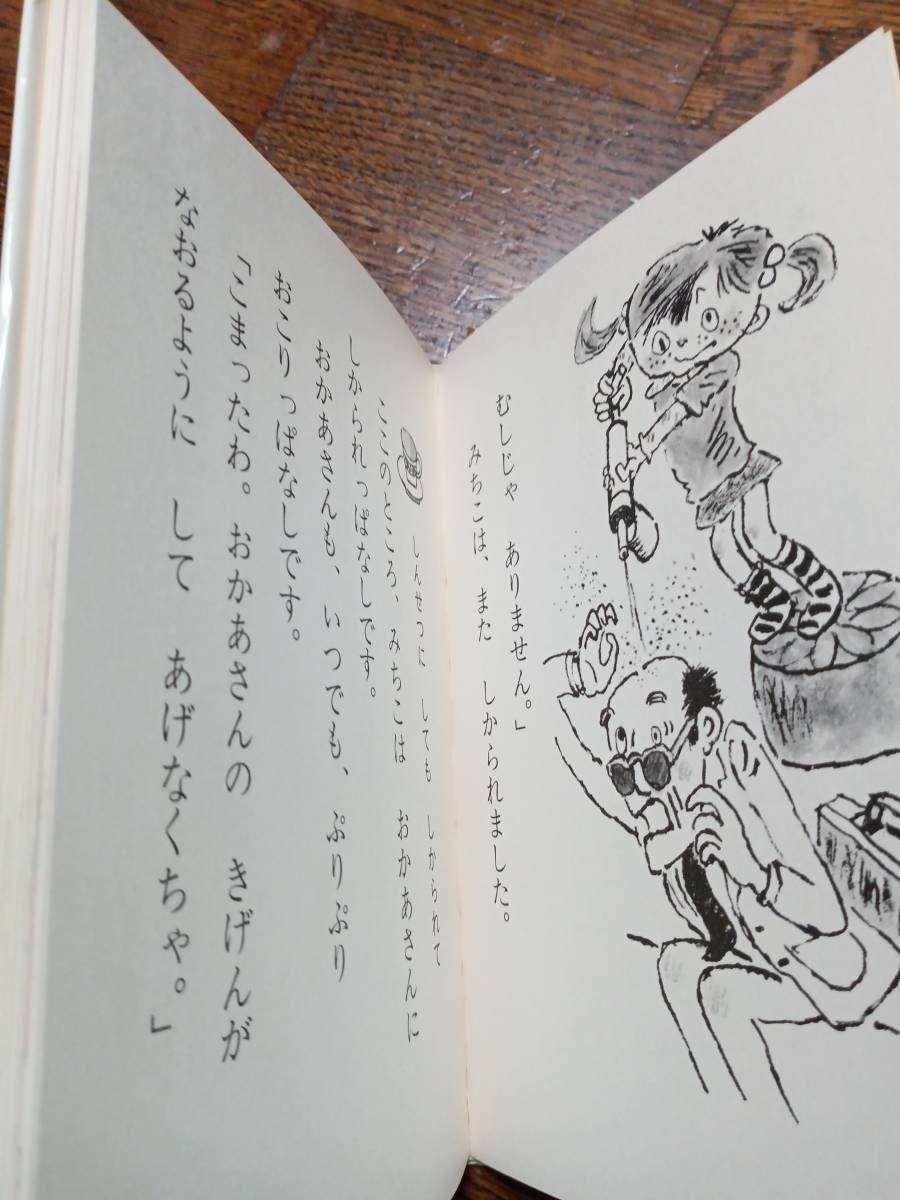 むしじゃ ありません。」
みちこは、また しかられました。
しんせつに しても しかられて
ここのところ、みちこは おかあさんに
しかられっぱなしです。
おかあさんも、いつでも、ぷりぷり
おこりっぱなしです。
「こまったわ。おかあさんの きげんが
なおるように して あげなくちゃ。」